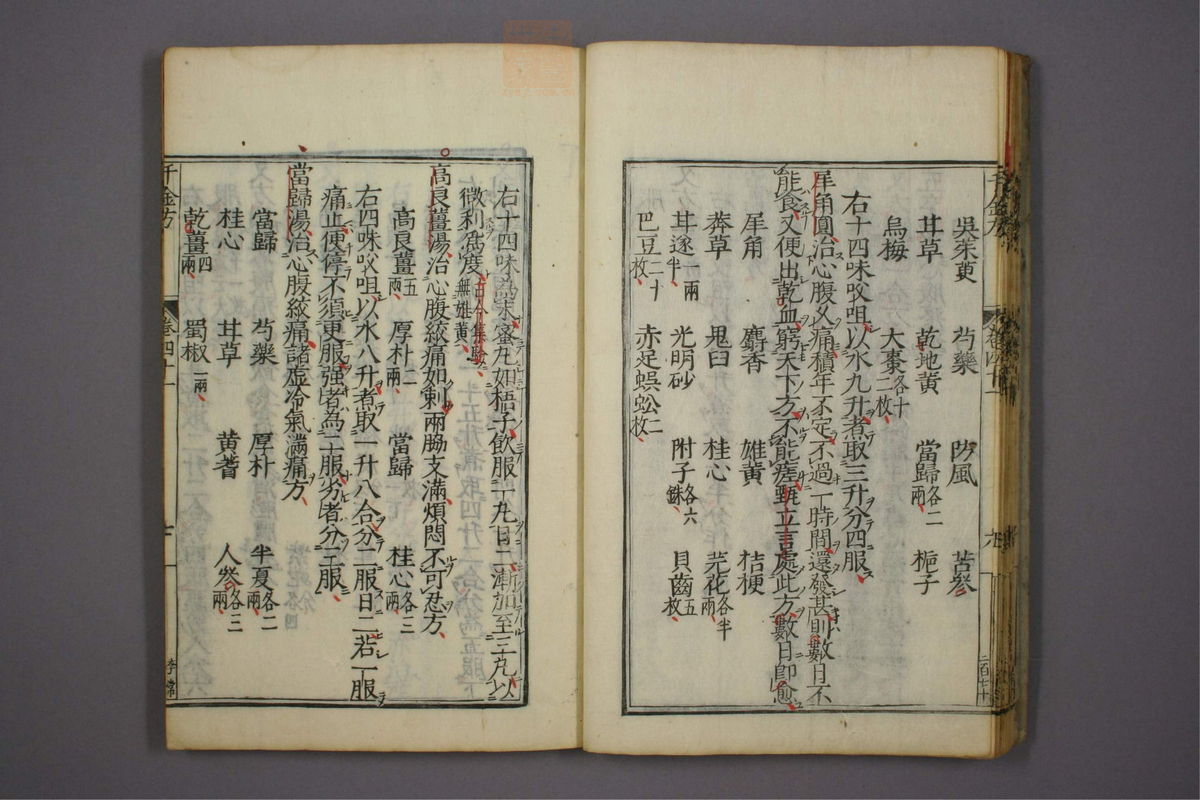 吳茱萸 芍藥 防風 苦參
甘草 乾地黃 當歸各二兩 梔子
烏梅 大棗各十二枚
右十四味㕮咀以水九升煮取三升分四服
犀角圓治心腹久痛積年不定不過一時間還發甚則數日不
能食又便出乾血窮天下方不能瘥甄立言處此方數日即愈
犀角 麝香 雄黃 桔梗
莽草 鬼臼 桂心 芫花各半兩
甘遂一兩半 光明砂 附子各六銖 貝齒五枚
巴豆二十枚 赤足蜈蚣二枚
右十四味為末蜜丸如梧子飲服一丸日二漸加至三丸以
微利為度古今集驗無雄黃
高良薑湯治心腹絞痛如刺兩脇支滿煩悶不可忍方
高良薑五兩 厚朴二兩 當歸 桂心各三兩
右四味㕮咀以水八升煮取一升八合分二服日二若一服
痛止便停不須更服強者為二服劣者分三服
當歸湯治心腹絞痛諸虛冷氣滿痛方
當歸 芍藥 厚朴 半夏各二兩
桂心 甘草 黃耆 人參各三兩
乾薑四兩 蜀椒一兩
千金方
卷四十一
七
李常